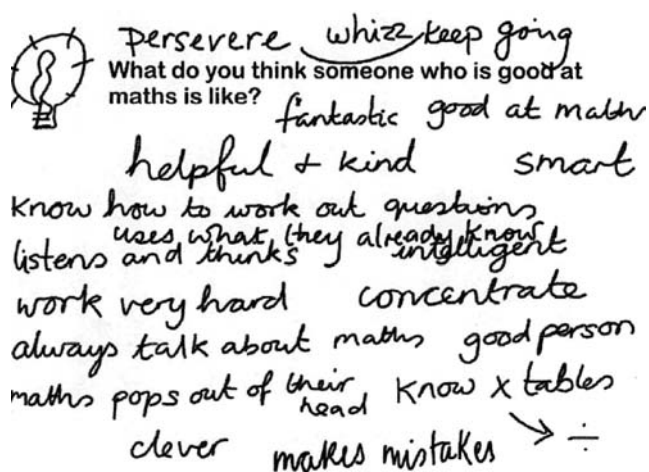 persevere whizz keep going
What do you think someone who is good at
maths is like?
fantastic good at maths
helpful + kind smart
know how to work out questions
uses what they already know
listens and thinks intelligent
work very hard concentrate
always talk about maths good person
maths pops out of their head know x tables
clever makes mistakes → ÷